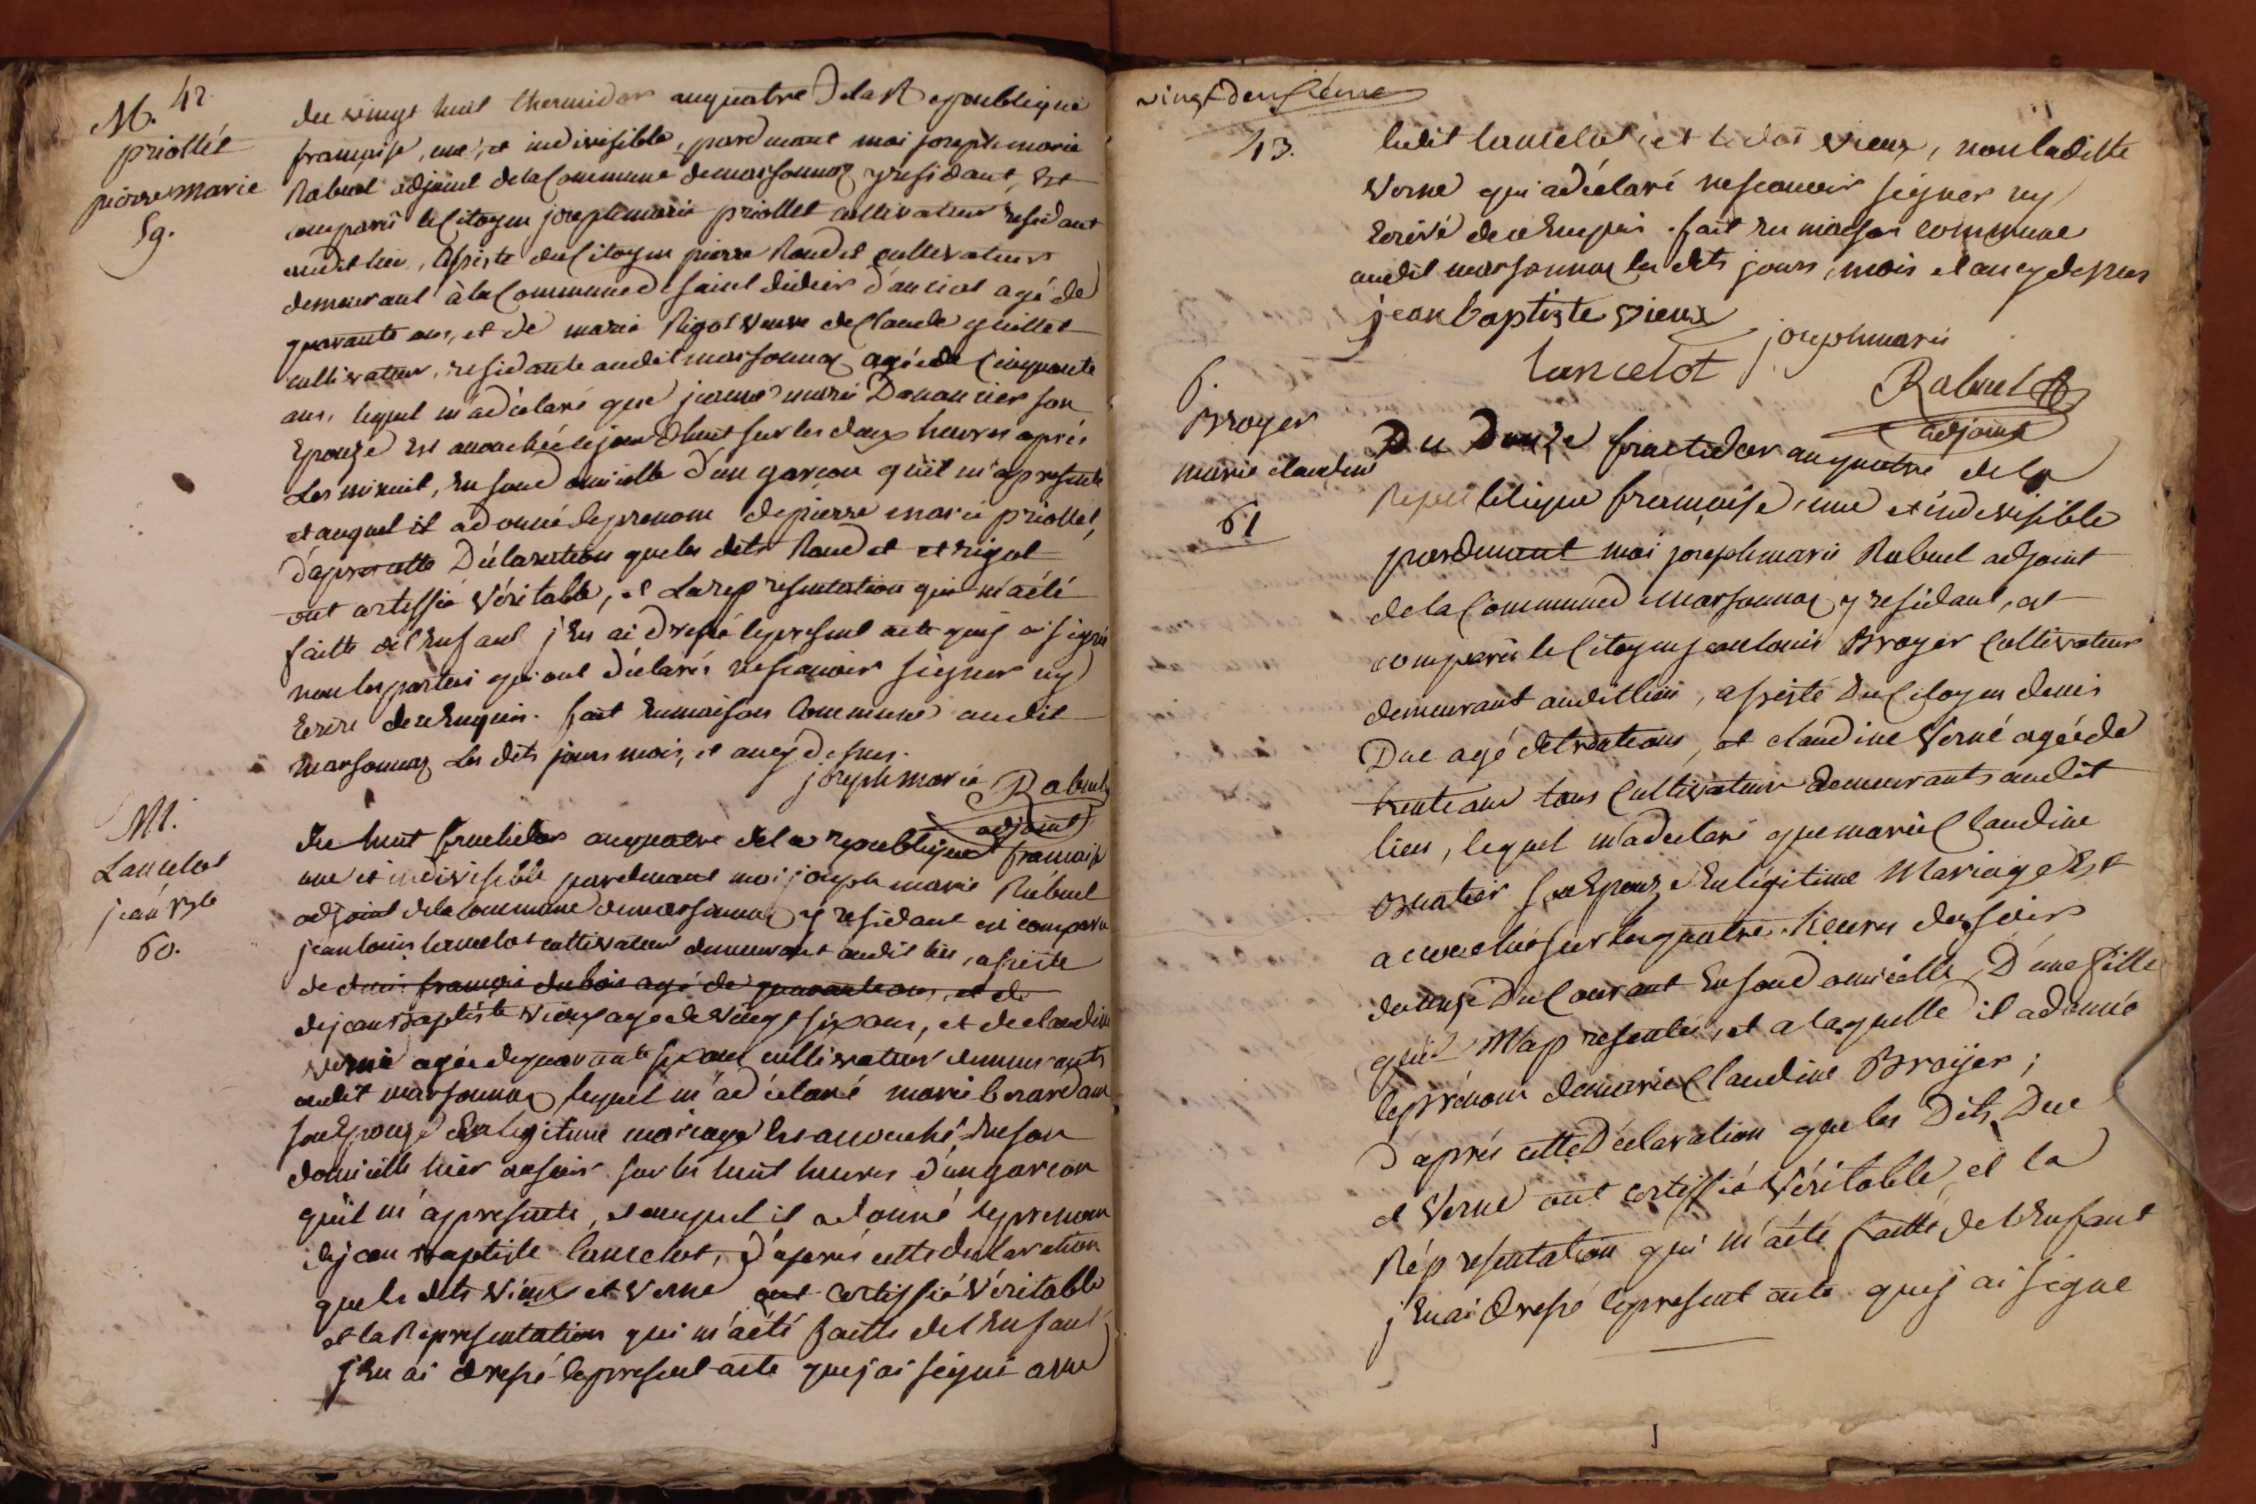 42.
M.
priollet
pierre marie
59.
du vingt huit thermidor an quatre de la Republique
francaise, une, et indivisible, pardevant moi joseph marie
Rabuel adjoint de la Commune de marsonnaz y residant, Est
comparu le Citoyen joseph marie priollet cultivateur residant
audit lieu, assiste du Citoyen pierre Roudet cultivateur
demeurant à la Commune de saint didier d'aucial agé de
quarante ans, et de marie Rigol veuve de Claude guillet
cultivateur, residante audit marsonnaz agée de Cinquante
ans, lequel m'a déclaré que jeanne marie Danancier son
Epouze Est accouchée le jourd'huit sur les deux heures après
les minuit, En son domicille d'un garcon qu'il m'a presenté
et auquel il a donné le prenom de pierre marie priollet,
d'apres cette Déclaration que les dits Roudet et rigol
ont certiffié Véritable, et La representation qui m'a été
faitte de l'Enfant j'En ai dressé le present acte que j'ai signé
non les parties qui ont déclarés ne scavoir signer ny
Ecrire de ce Enquis. fait En maison Commune audit
marsonnaz Les dits jours mois, et an cy dessus.
joseph marie Rabuel
adjoint
M.
Lancelot
jean Bte
60.
du huit fructidor an quatre de la republique francaise
une et indivisible pardevant moi joseph marie Rabuel
adjoint de la Commune de marsonnaz y residant est comparu
jean louis lancelot cultivateur demeurant audit lieu, assisté
de denis francois dubois agé de quarante ans, et de
de jean Baptiste vieux agé de vingt six ans, et de claudine
verne agée de quarante six ans cultivateur demeurants
audit marsonnaz lequel m'a déclaré marie berardan
son Epouze En legitime mariage Est accouché En son
domicille hier au soir sur les huit heures d'un garcon
qu'il m'a presenté, et auquel il a donné le prenom
de jean Baptiste lancelot, D'après cette declaration
que les dits vieux et verne ont certiffié véritable
et la Representation qui m'a été faitte de l'Enfant
j'En ai dressé le present acte que j'ai signé avec
vingt deuxième
43.
ledit lancelot, et ledit vieux, non laditte
verne qui a déclaré ne scavoir signer ny
Ecrire de ce Enquis. fait En maison commune
audit marsonnaz les dits jours, mois et an cy dessus
jean baptiste vieux
lancelot joseph marie
Rabuel
adjoint
f.
Broyer
marie claudine
61
Du Douze fructidor an quatre de la
Republique francaise, une et indivisible
pardevant moi joseph marie Rabuel adjoint
de la Commune de marsonnaz y residant, est
comparu le Citoyen jean louis Broyer Cultivateur
demeurant audit lieu, assisté Du Citoyen denis
Duc agé de trente ans, et claudine verne agée de
trente ans tous Cultivateurs demeurants audit
lieu, lequel m'a declaré que marie Claudine
son Epouze En légitime Mariage Est
accouchée sur les quatre heures du soir
du onze Du Courant En son domicille, D'une fille
qu'il M'a presentée, et a laquelle il a donné
le prénom de marie Claudine Broyer;
D'après cette Déclaration que les Dits Duc
et Verne ont certiffié Véritable, et la
Répresentation qui m'a été faitte de l'Enfant
j'En ai Dressé le present acte que j'ai signé